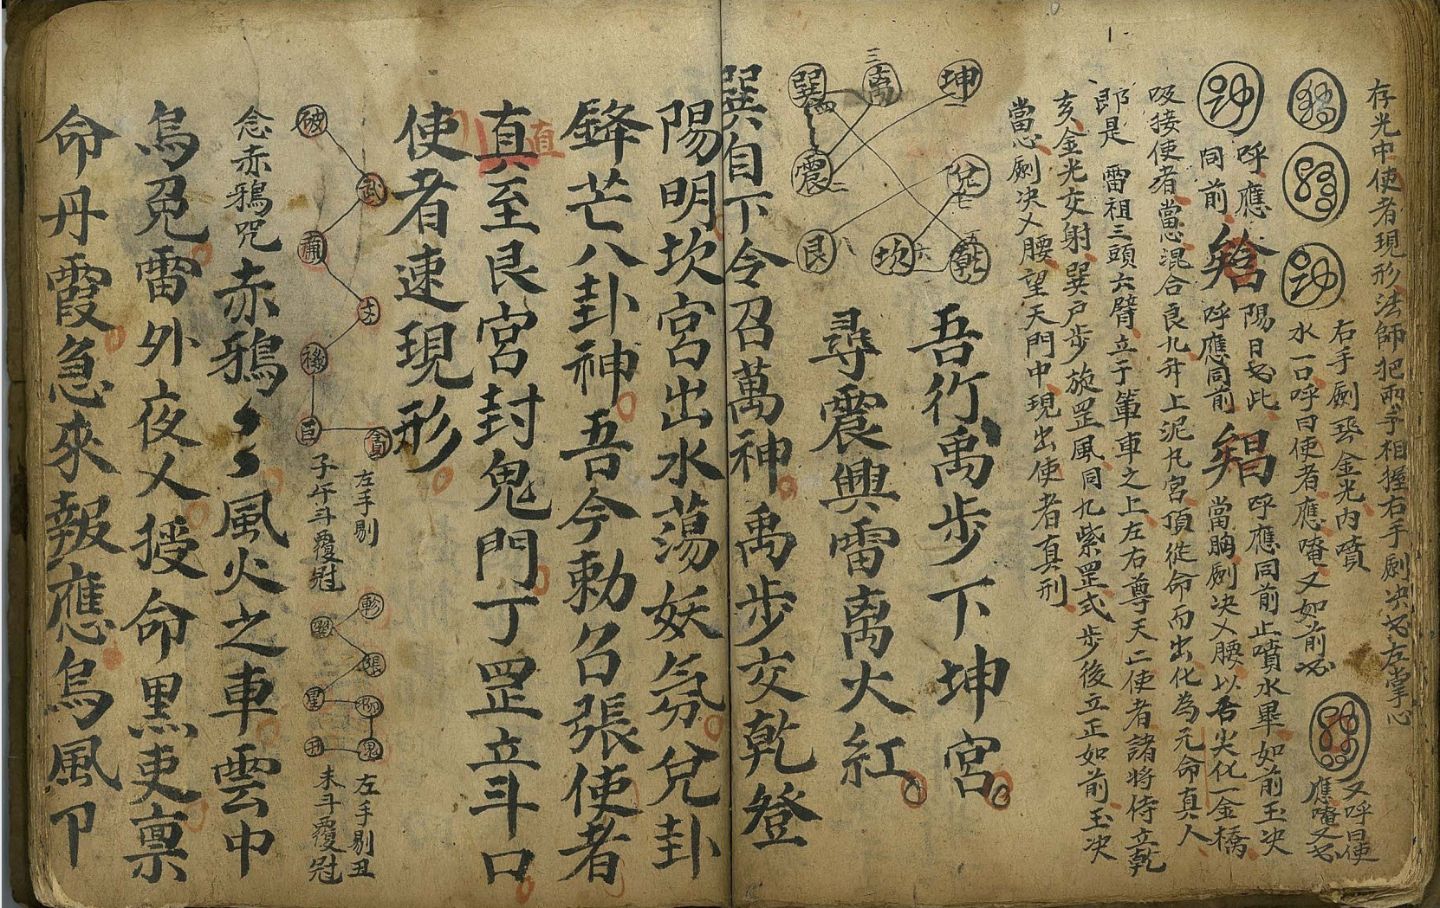 存光中使者現形法師把兩手相握右手劍決書左掌心
右手劍
金光內噴
水一口呼曰使者應唵又如前書
又呼曰使
應唵又書
呼應
同前
陽日書此
呼應同前
呼應同前止噴水畢如前玉決
當胸劍決乂腰以舌尖化一金橋
吸接使者當心混合艮九升上泥丸宮頂從命而出化為元命真人
郎是 雷祖三頭六臂立于輦車之上左右尊天二使者諸將侍立乾
亥金光交射巽戶步旋罡風同九紫罡式步後立正如前玉決
當心劍決乂腰望天門中現出使者真刑
坤一
離三
巽四
震二
兌七
艮八
坎六
乾五
吾行禹步下坤宮
尋震興雷离火紅
巽自下令召萬神禹步交乾登
陽明坎宮出水蕩妖氛兌卦
鋒芒八卦神吾今勅召張使者
真至艮宮封鬼門丁罡立斗口
直
使者速現形
破
武
廉
文
祿
巨
貪
左手剔
子午斗覆冠
軫
翼
張
星
柳
鬼
丑
左手剔丑
未斗覆冠
念赤鴉咒
赤鴉〻〻風火之車雲中
烏兎雷外夜乂授命黑吏稟
命丹霞急來報應烏風卩